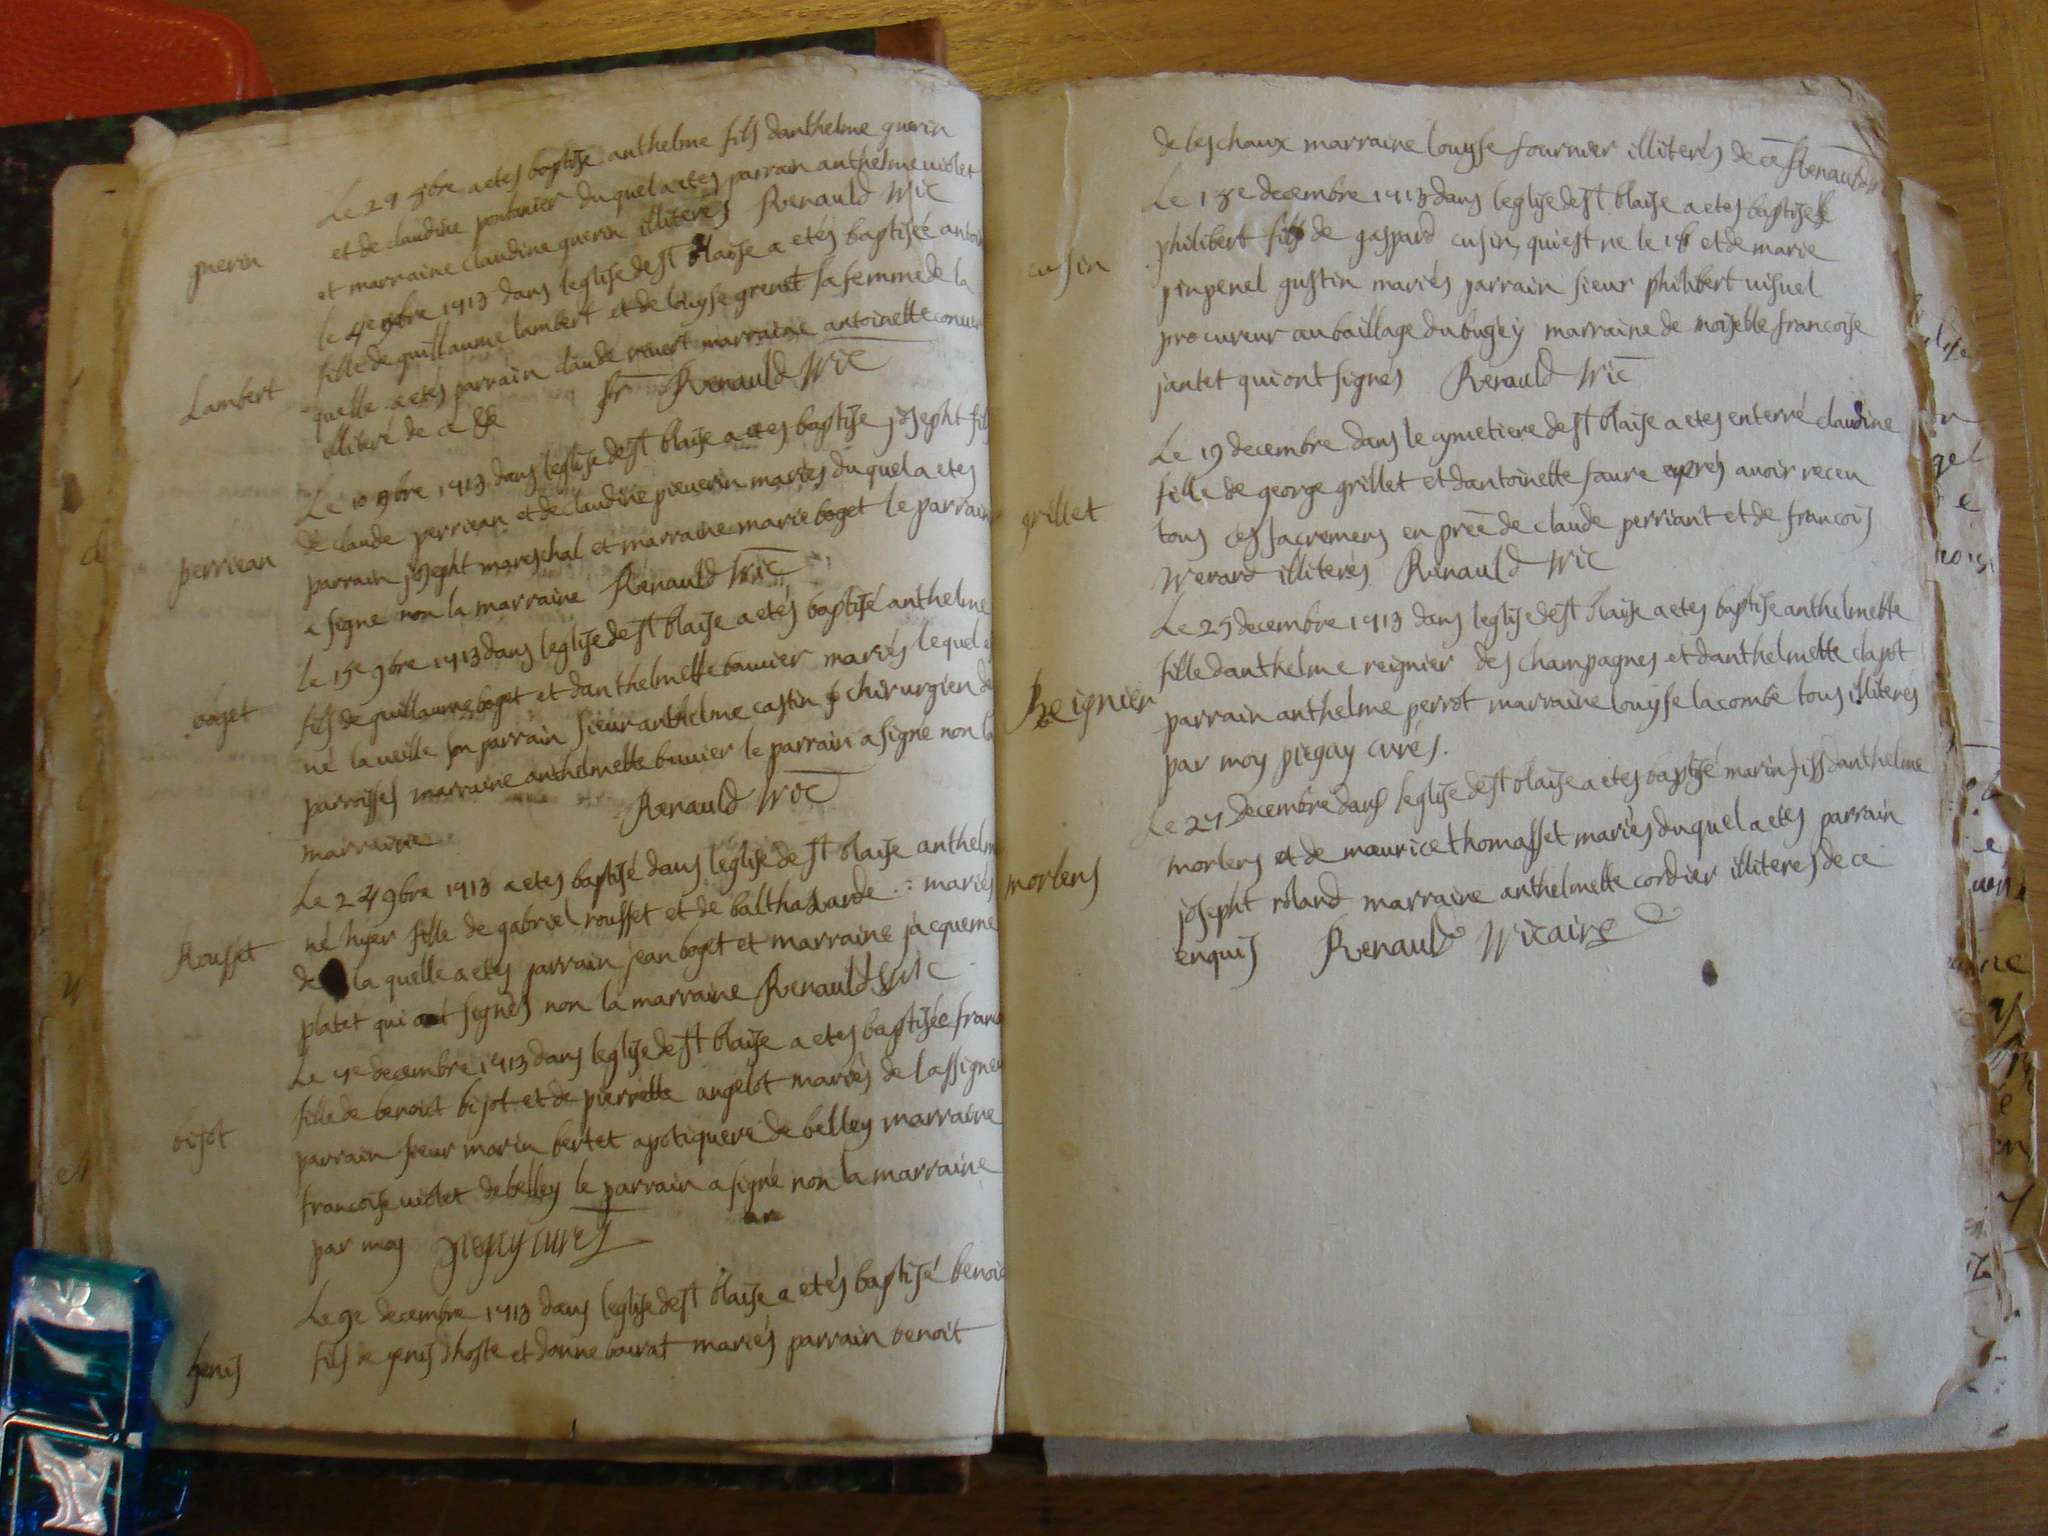 guerin
Le 29 8bre a etes baptise anthelme fils danthelme guerin
et de claudine pontanier du quel a etes parrain anthelme uiolet
et marraine claudine guerin illiteres Renauld Vic
Lambert
le 4e 9bre 1713 dans leglise de st blaise a etés baptisée antoi
fille de guillaume lambert et de louyse grenet sa femme de la
quelle a etés parrain claude reuert marraine antoinette conuer
illiteré de ce Renauld Vic
perriean
Le 10 9bre 1713 dans leglise de st blaise a etes baptise josepht fils
de claude perriean et de claudine pieuerin maries du quel a etes
parrain josepht mareschal et marraine marie boget le parrain
a signe non la marraine Renauld Vic
boget
le 15e 9bre 1713 dans leglise de st blaise a etés baptisé anthelme
fils de guillaume boget et danthelmette bauuier mariés lequel e
né la ueille son parrain sieur anthelme castin chirurgien de
parroisses marraine anthelmette bauuier le parrain a signé non la
marraine Renauld Vic
Rousset
Le 24 9bre 1713 a etes baptisé dans leglise de st blaise anthelm
né hyer fille de gabriel rousset et de balthazarde mariés
de la quelle a etes parrain jean boget et marraine jacqueme
platet qui ont signés non la marraine Renauld Vic
bijot
Le 7e decembre 1713 dans leglise de st blaise a etes baptisée franc
fille de benoict bijot et de pierrette angelot mariés de lassigneu
parrain sieur marin bertet apotiquere de belley marraine
francoise uiolet de belley le parrain a signé non la marraine
par moy piegay curés
genis
Le 9e decembre 1713 dans leglise de st blaise a etés baptisé benoi
fils de genis dhoste et danne bourat mariés parrain benoit
de leschaux marraine louyse fournier illiterés de ce Renauld
cusin
Le 15e decembre 1713 dans leglise de st blaise a etes baptise
philibert fils de gaspard cusin, qui est ne le 16 et de marie
pinpenel gustin mariés parrain sieur philibert uisuel
procureur au baillage du bugey marraine de moiselle francoise
jantet qui ont signés Renauld Vic
grillet
Le 19 decembre dans le cymetiere de st blaise a etes enterré claudine
fille de george grillet et dantoinette faure apres auoir receu
tous ces sacremens en pree de claude perriant et de francois
Verard illiterés Renauld Vic
Reignier
Le 25 decembre 1713 dans leglise de st blaise a etes baptise anthelmette
fille danthelme reignier des champagnes et danthelmette clapot
parrain anthelme perrot marraine louyse lacombe tous illiterés
par moy piegay curés.
morlens
Le 27 decembre dans leglise de st blaise a etes baptisé marin fils danthelme
morlens et de maurice thomasset mariés du quel a etes parrain
josepht roland marraine anthelmette cordier illiteres de ce
enquis Renauld Vicaire